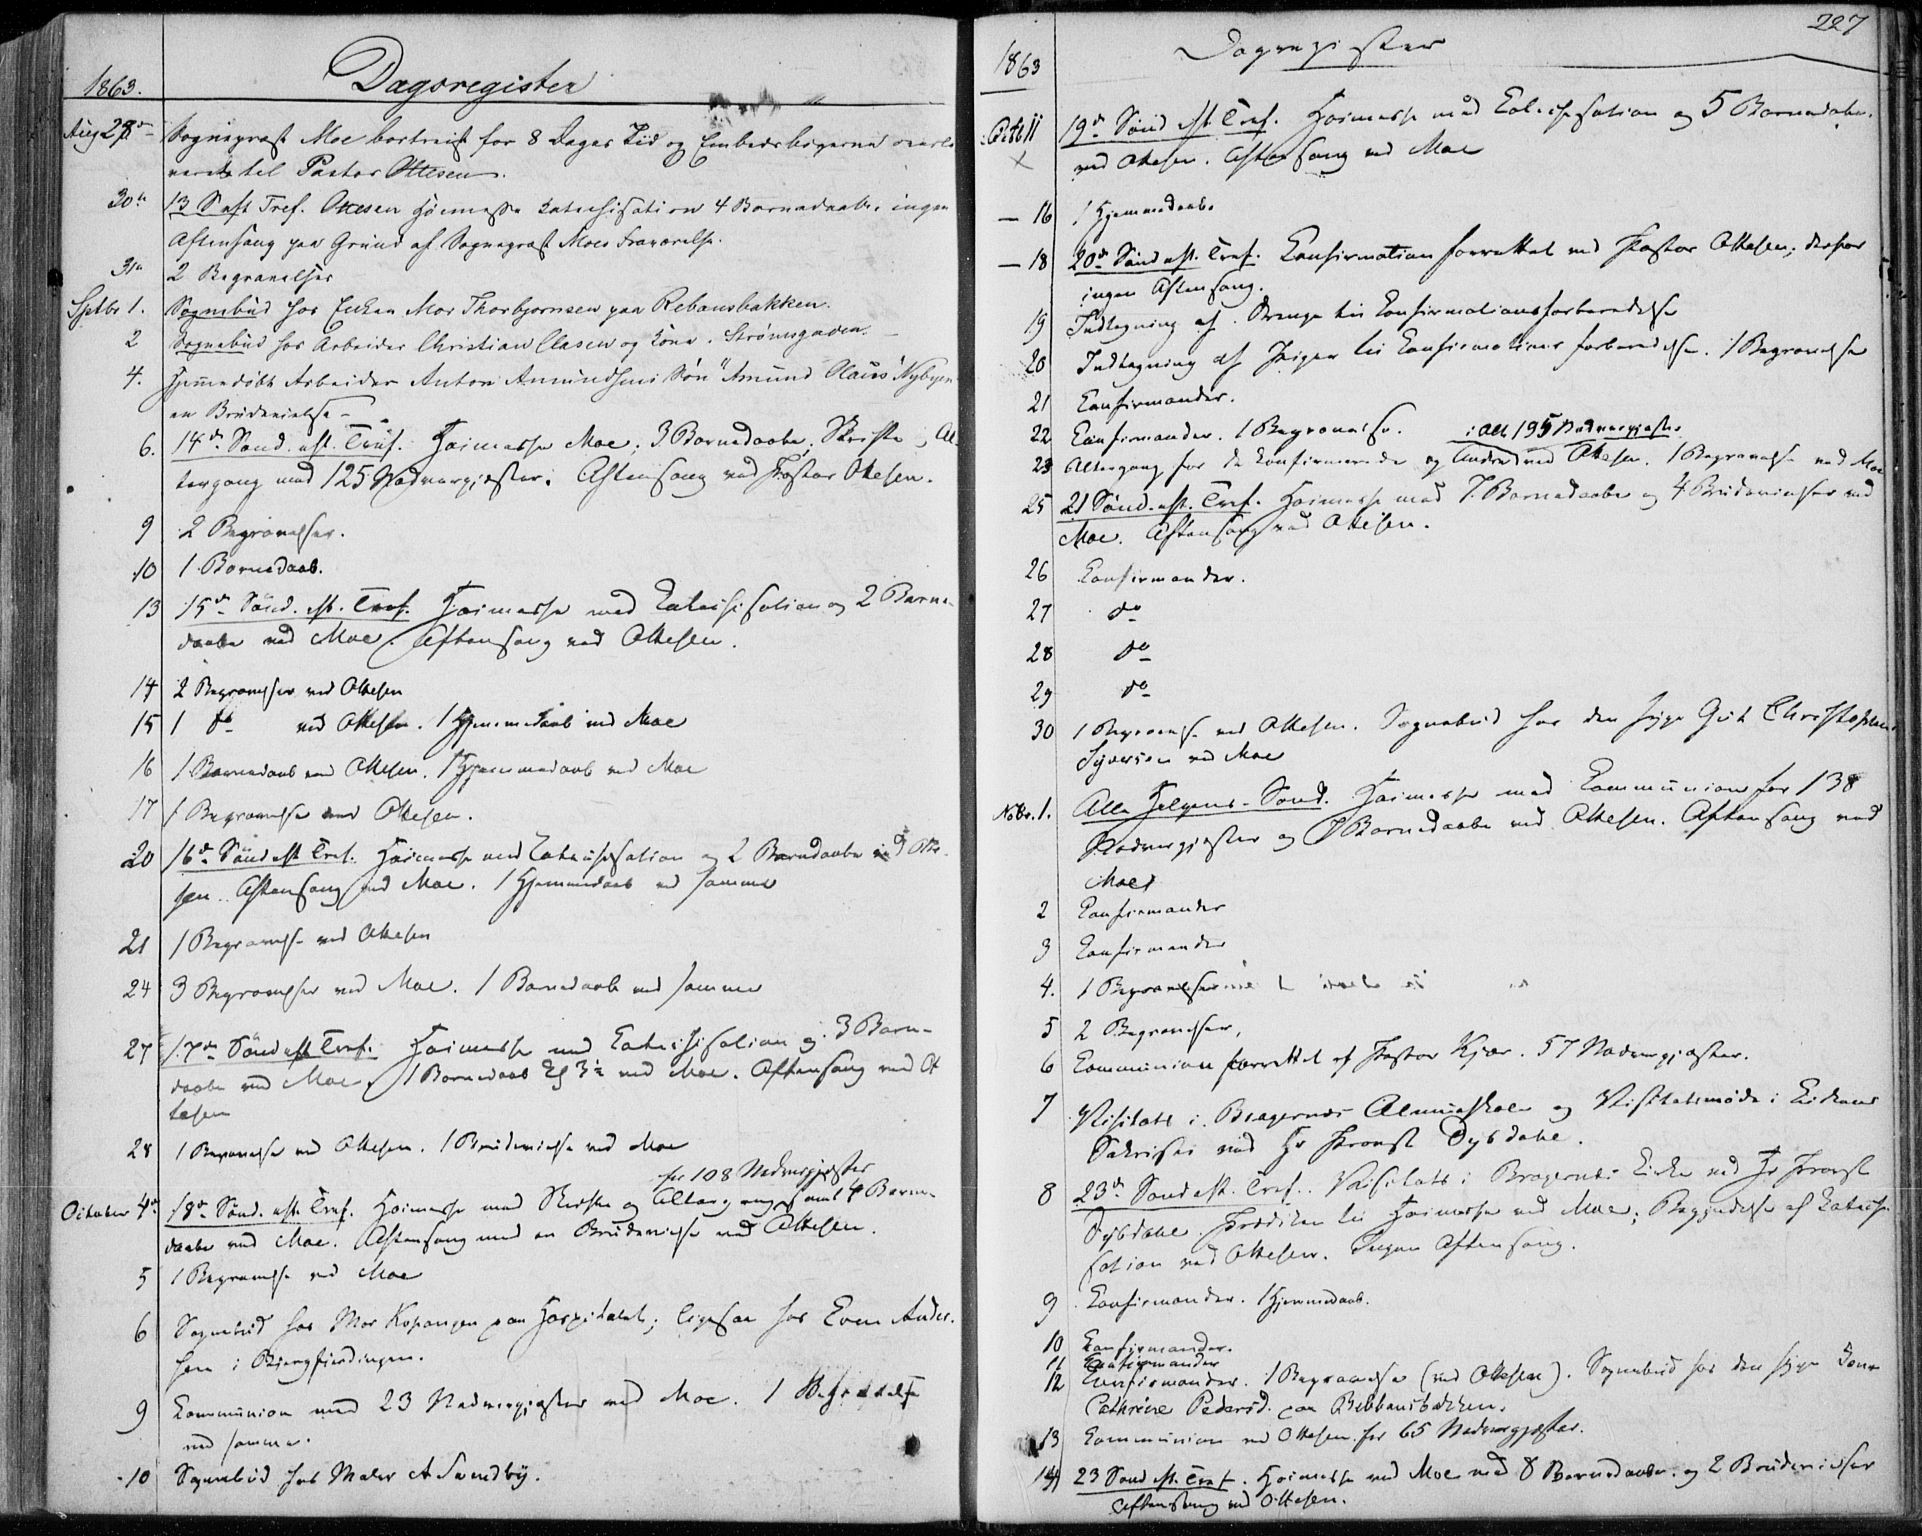 1863.
Dagsregister
Aug 28de Sognepræst Moe bortreist for 8 Dages Tid og Embedsbøgerne overle
verede til Pastor Ottesen.
30te 13 S. eft Tref. Ottesen Høimesse Katechisation 4 Barnedaabe. ingen
Aftensang paa Grund af Sognepræst Moes Fraværelse.
31te 2 Begravelser
Septbr 1. Sognebud hos Enken Mor Thorbjørnsen paa Rebansbakken.
2 Sognebud hos Arbeider Christian Clasen og Kone. Strømsgaden.
4. Hjemmedøbt Arbeider Anton Amundsens Søn "Amund Olaus" Nybyen
en Brudevielse
6. 14de Sønd. eft. Tref. Høimesse Moe; 3 Barnedaabe, Skrifte, Al
tergang med 125 Nadvergjæster. Aftensang ved Pastor Ottesen.
9 2 Begravelser.
10 1 Barnedaab.
13 15de Sønd. eft. Tref. Høimesse med Catechisation og 2 Barne-
daabe ved Moe. Aftensang ved Ottesen.
14 2 Begravelser ved Ottesen
15 1 do ved Ottesen. 1 Hjemmedaab ved Moe
16 1 Barnedaab ved Ottesen. 1 Hjemmedaab ved Moe
17 1 Begravelse ved Ottesen.
20 16de Sønd eft Tref. Høimesse med Catechisation og 2 Barnedaabe ved Otte-
sen. Aftensang ved Moe. 1 Hjemmedaab ved samme
21 1 Begravelse ved Ottesen
24 3 Begravelser ved Moe. 1 Barnedaab ved samme
27 17de Sønd eft Tref. Høimesse med Catechisation og 3 Barne-
daabe ved Moe. 1 Barnedaab Kl 3½ ved Moe. Aftensang ved Ot
tesen
28 1 Begravelse ved Ottesen. 1 Brudevielse ved Moe
for 108 Nadvergjæster
October 4de 18de Sønd. eft. Tref. Høimesse med Skrifte og Altergang samt 4 Barne-
daabe ved Moe. Aftensang med en Brudevielse ved Ottesen.
5 1 Begravelse ved Moe
6 Sognebud hos Mor Kopangen paa Hospitalet; ligesaa hos Even Ander-
sen i Bjergfjerdingen.
9 Kommunion med 23 Nadvergjæster ved Moe. 1 Begravelse
ved samme.
10 Sognebud hos Maler A Sundby.
227
1863
Dagregister
Octb 11 19de Sønd eft Tref. Høimesse med Catechisation og 5 Barnedaabe.
× ved Ottesen. Aftensang ved Moe
— 16 1 Hjemmedaab.
— 18 20de Sønd eft. Tref. Confirmation forrettet ved Pastor Ottesen; derfor
ingen Aftensang.
19 Indtegning af Drenge til Confirmationsforberedelse
20 Indtegning af Piger til Confirmations forberedelse. 1 Begravelse
21 Confirmander.
22 Confirmander. 1 Begravelse. i alt 195 Nadvergjæster.
23 Altergang for de Confirmerede og Andre ved Ottesen. 1 Begravelse ved Moe
25 21 Sønd. eft. Tref. Høimesse med 7 Barnedaabe og 4 Brudevielser ved
Moe. Aftensang ved Ottesen.
26 Confirmander.
27 do
28 do
29 do
30 1 Begravelse ved Ottesen. Sognebud hos den syge Gut Christopher
Syversen ved Moe
Novbr. 1. Alle Helgens-Sønd. Høimesse med Communion for 138
Nadvergjæster og 7 Barnedaabe ved Ottesen. Aftensang ved
Moe
2 Confirmander
3 Confirmander
4. 1 Begravelse
5 2 Begravelser,
6 Communion forrettet af Pastor Kjær. 57 Nadvergjæster.
7 Visitats i Bragernæs Almueskole og Visitatsmøde i Kirkens
Sakristi ved Hr Provst Dybdahl.
8 23de Sønd eft. Tref. Visitats i Bragernæs Kirke ved Hr Provst
Dybdahl. Prædiken til Høimesse ved Moe; Begyndelse af Catechi-
sation ved Ottesen. Ingen Aftensang.
9 Confirmander. 1 Hjemmedaab.
10 Confirmander.
11 Confirmander
12 Confirmander. 1 Begravelse (ved Ottesen). Sognebud hos den syge Kone
Cathrine Pedersd. paa Rebbansbakken.
13 Communion ved Ottesen for 65 Nadvergjæster.
14 23 Sønd eft. Tref. Høimesse ved Moe med 8 Barnedaabe. og 2 Brudevielser
Aftensang ved Ottesen.